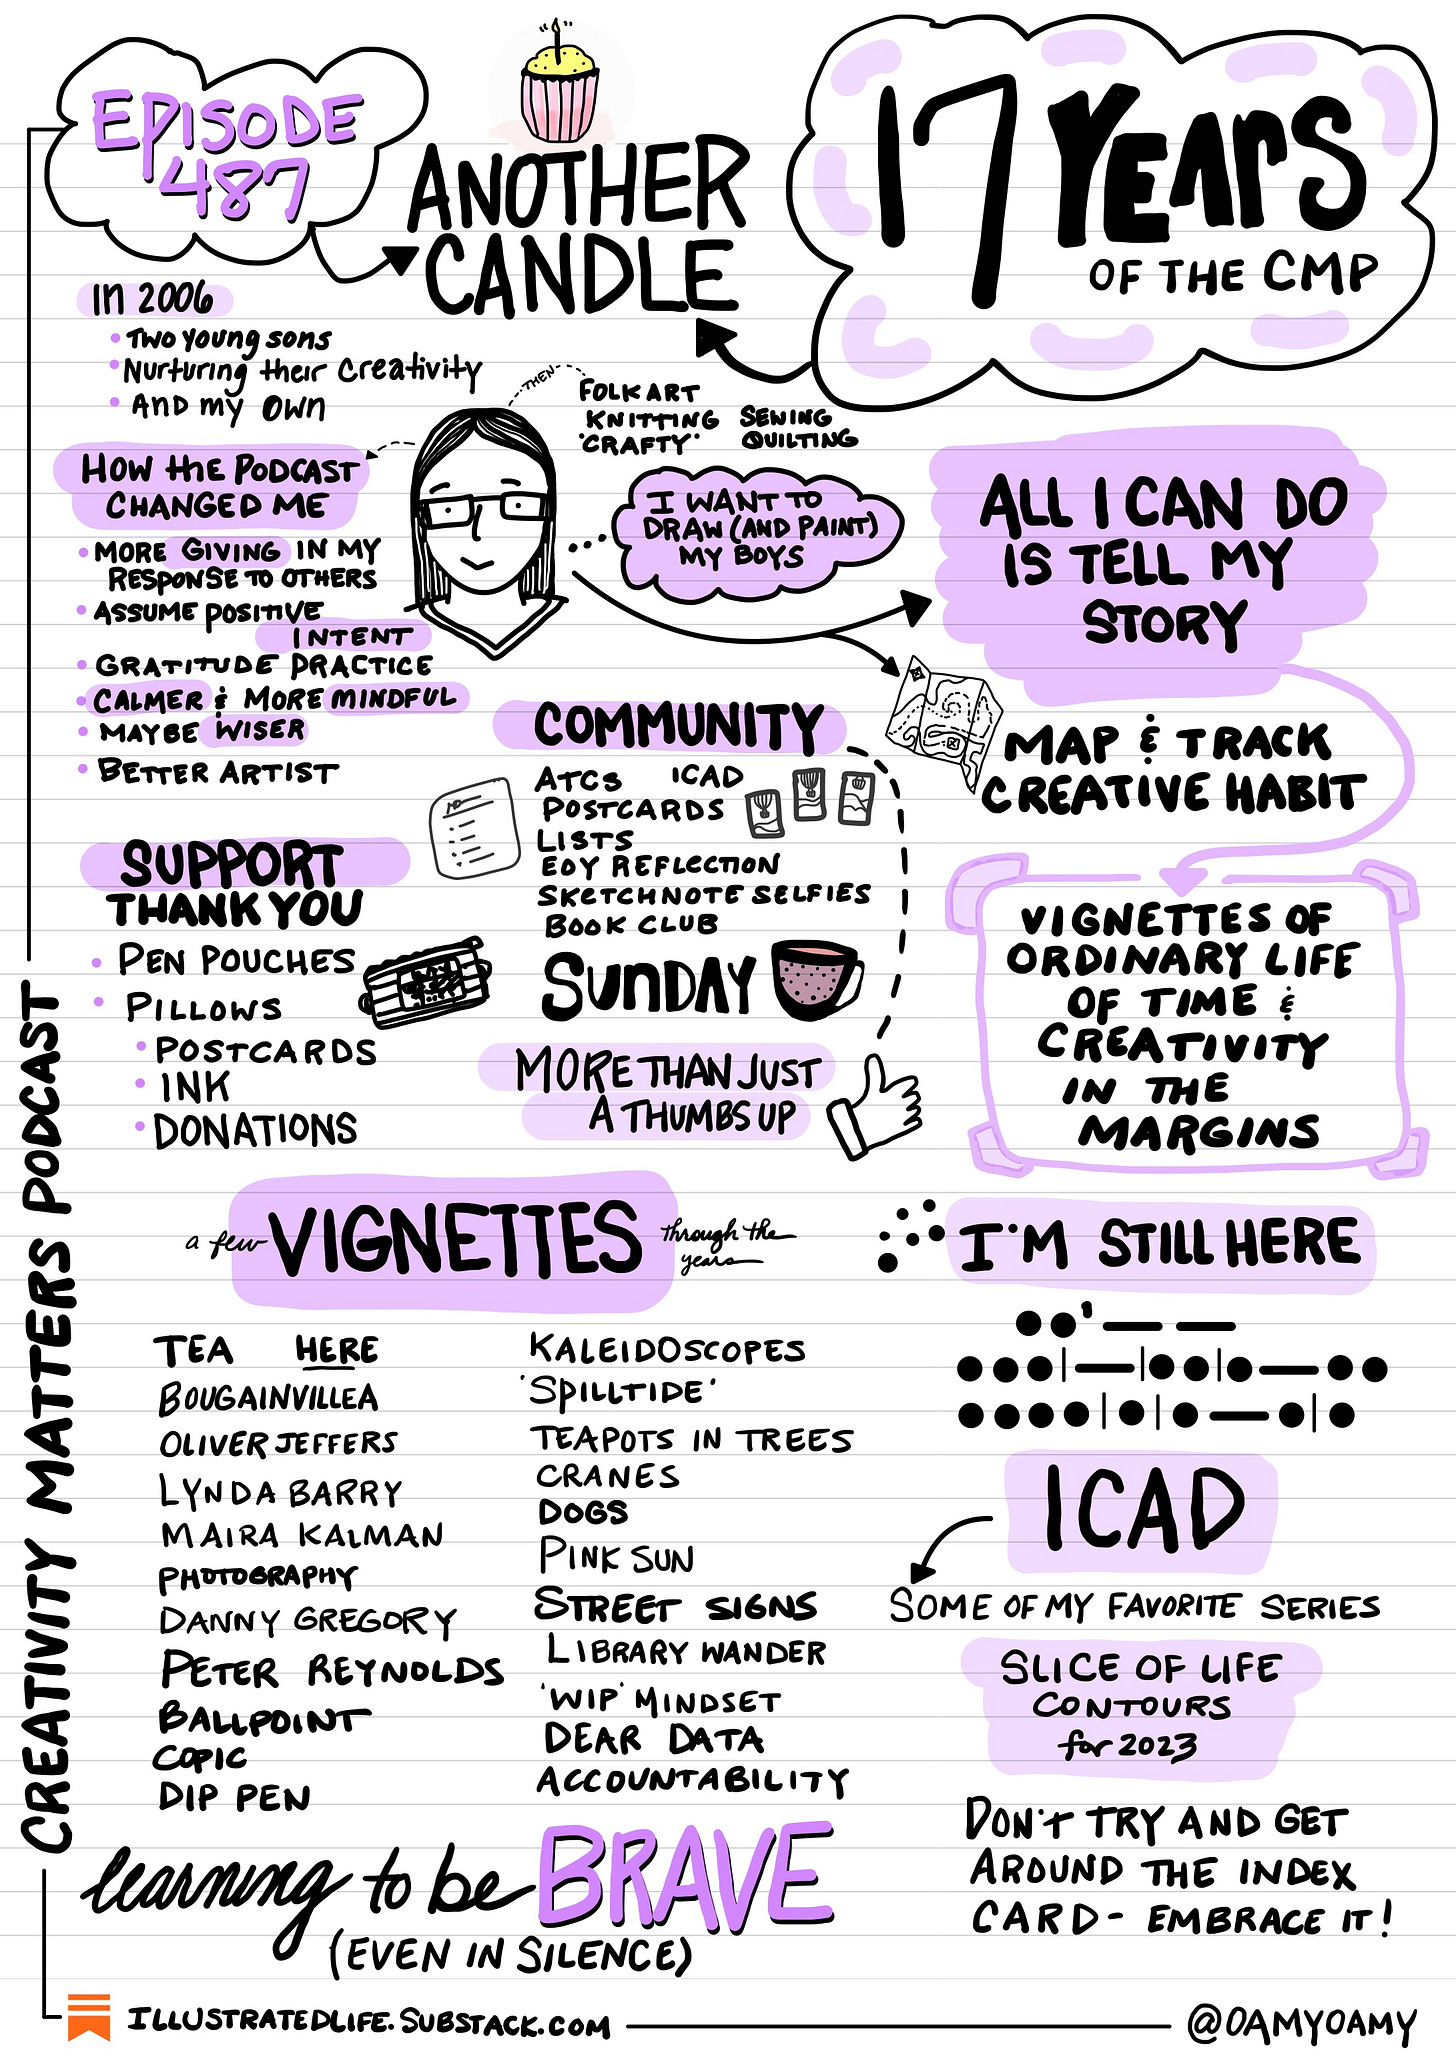 EPISODE
487
ANOTHER
CANDLE
17 YEARS
OF THE CMP
IN 2006
• TWO YOUNG SONS
• NURTURING THEIR CREATIVITY
• AND MY OWN
THEN
FOLK ART
KNITTING SEWING
'CRAFTY' QUILTING
HOW THE PODCAST
CHANGED ME
• MORE GIVING IN MY
RESPONSE TO OTHERS
• ASSUME POSITIVE
INTENT
• GRATITUDE PRACTICE
• CALMER & MORE MINDFUL
• MAYBE WISER
• BETTER ARTIST
I WANT TO
DRAW (AND PAINT)
MY BOYS
ALL I CAN DO
IS TELL MY
STORY
MAP & TRACK
CREATIVE HABIT
COMMUNITY
ATCS ICAD
POSTCARDS
LISTS
EOY REFLECTION
SKETCHNOTE SELFIES
BOOK CLUB
SUNDAY
MORE THAN JUST
A THUMBS UP
SUPPORT
THANK YOU
• PEN POUCHES
• PILLOWS
• POSTCARDS
• INK
• DONATIONS
VIGNETTES OF
ORDINARY LIFE
OF TIME &
CREATIVITY
IN THE
MARGINS
CREATIVITY MATTERS PODCAST
a few VIGNETTES through the
years
TEA HERE
BOUGAINVILLEA
OLIVER JEFFERS
LYNDA BARRY
MAIRA KALMAN
PHOTOGRAPHY
DANNY GREGORY
PETER REYNOLDS
BALLPOINT
COPIC
DIP PEN
KALEIDOSCOPES
'SPILLTIDE'
TEAPOTS IN TREES
CRANES
DOGS
PINK SUN
STREET SIGNS
LIBRARY WANDER
'WIP' MINDSET
DEAR DATA
ACCOUNTABILITY
I'M STILL HERE
●●'— —
●●●|—|●●|●—●●
●●●●|●|●—●|●
ICAD
SOME OF MY FAVORITE SERIES
SLICE OF LIFE
CONTOURS
for 2023
DON'T TRY AND GET
AROUND THE INDEX
CARD- EMBRACE IT!
learning to be BRAVE
(EVEN IN SILENCE)
ILLUSTRATEDLIFE.SUBSTACK.COM
@OAMYOAMY